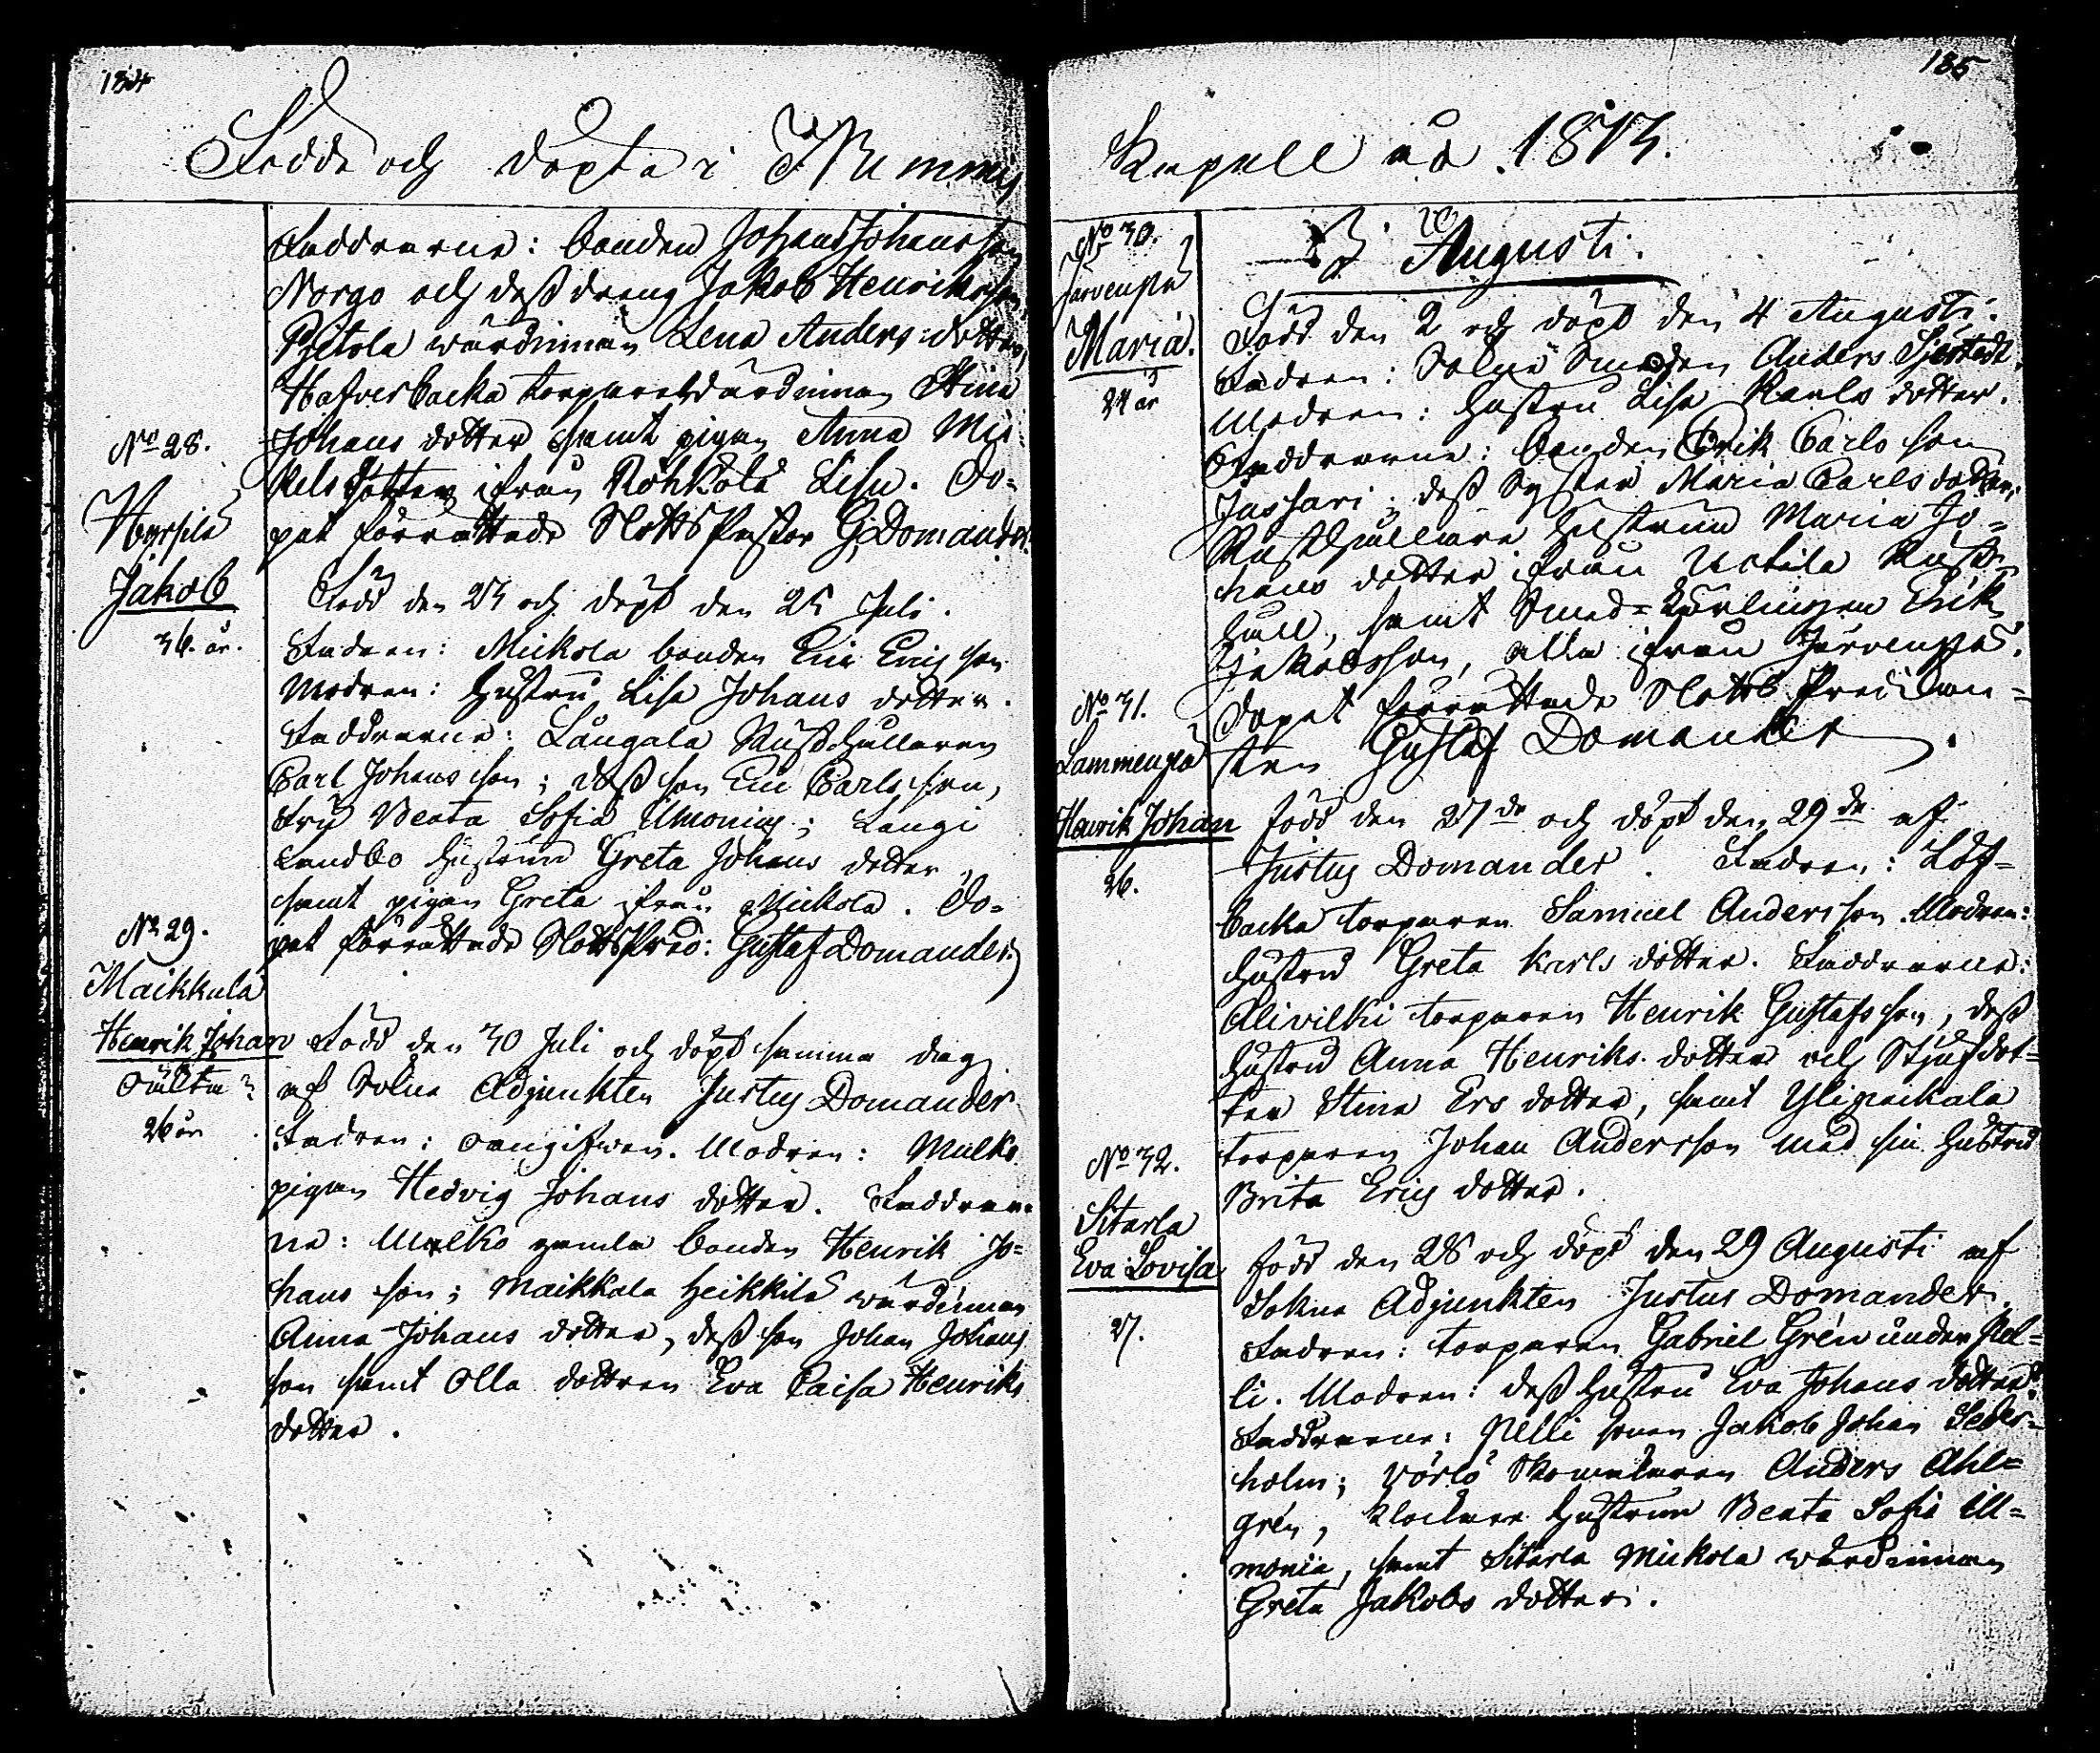 184
Födde och döpta i Nummis
Faddrarne: bonden Johan Johansson
Norgo och dess dreng Jakob Henriksson,
Pjetola wärdinnan Lena Anders dotter,
Hafverbacka torparewärdinnan Stina
Johans dotter samt pigan Anna Mi-
kels dotter ifrån Röhkölä Lisu. Do-
pet förrättade SlottsPastor G. Domander.
No 28.
Hyrsilä
Jakob
36. år.
Född den 23 och döpt den 25 Juli.
Fadren: Mickola bonden Eric Ericsson
Modren: hustru Lisa Johans dotter.
Faddrarne: Långala Rusthållaren
Carl Johansson; dess son Eric Carlsson,
Fru Beata Sofia Ilmonius; Langi
Landbo hustrun Greta Johans dotter,
samt pigan Greta ifrån Mickola. Do-
pet förrättade SlottsPred: Gustaf Domander.
No 29.
Maikkala
Henrik Johan
oäkta
26 år
Född den 30 Juli och döpt samma dag
af Sokne Adjunkten Justus Domander
Fadren: oangifven. Modren: Mulko
pigan Hedvig Johans dotter. Faddrar-
ne: Mulko gamla bonden Henrik Jo-
hans son; Maikkala Heikkilä wärdinnan
Anna Johans dotter, dess son Johan Johans
son samt Olla dottren Eva Caisa Henriks
dotter.
185
Kapell år 1813.
No 30.
Järvenpä
Maria.
24 år
Augusti.
Född den 2 och döpt den 4 Augusti.
Fadren: Sokne Smeden Anders Sjöstedt.
Modren: hustru Lisa Karls dotter.
Faddrarne: bonden Erik Carls son
Jussari; dess Syster Maria Carls dotter;
Rusthållare hustrun Maria Jo-
hans dotter ifrån Uotila Rust-
håll, samt Smed-Lärlingen Erik
Jakobsson, alla ifrån Järvenpä.
Dopet förrättade Slotts Predikan-
ten Gustaf Domander.
No 31.
Lammenpä
Henrik Johan
26.
född den 27de och döpt den 29de af
Justus Domander. Fadren: Löf-
backa torparen Samuel Andersson. Modren:
hustru Greta Karls dotter. Faddrarne:
Alivilki torparen Henrik Gustafsson, dess
hustru Anna Henriks dotter och Stjufdot-
ter Stina Ers dotter, samt Ylipaikala
torparen Johan Andersson med sin hustru
Brita Erics dotter.
No 32.
Sitarla
Eva Lovisa
27.
född den 28 och döpt den 29 Augusti af
Sokne Adjunkten Justus Domander.
Fadren: torparen Gabriel Grén under Pel-
li. Modren: dess hustru Eva Johans dotter.
Faddrarne: Pelli sonen Jakob Johan Seder-
holm; Vörlö Skomakaren Anders Ahl-
grén, klockare hustrun Beata Sofia Ill-
monia, samt Sitarla Mickola wärdinnan
Greta Jakobs dotter.